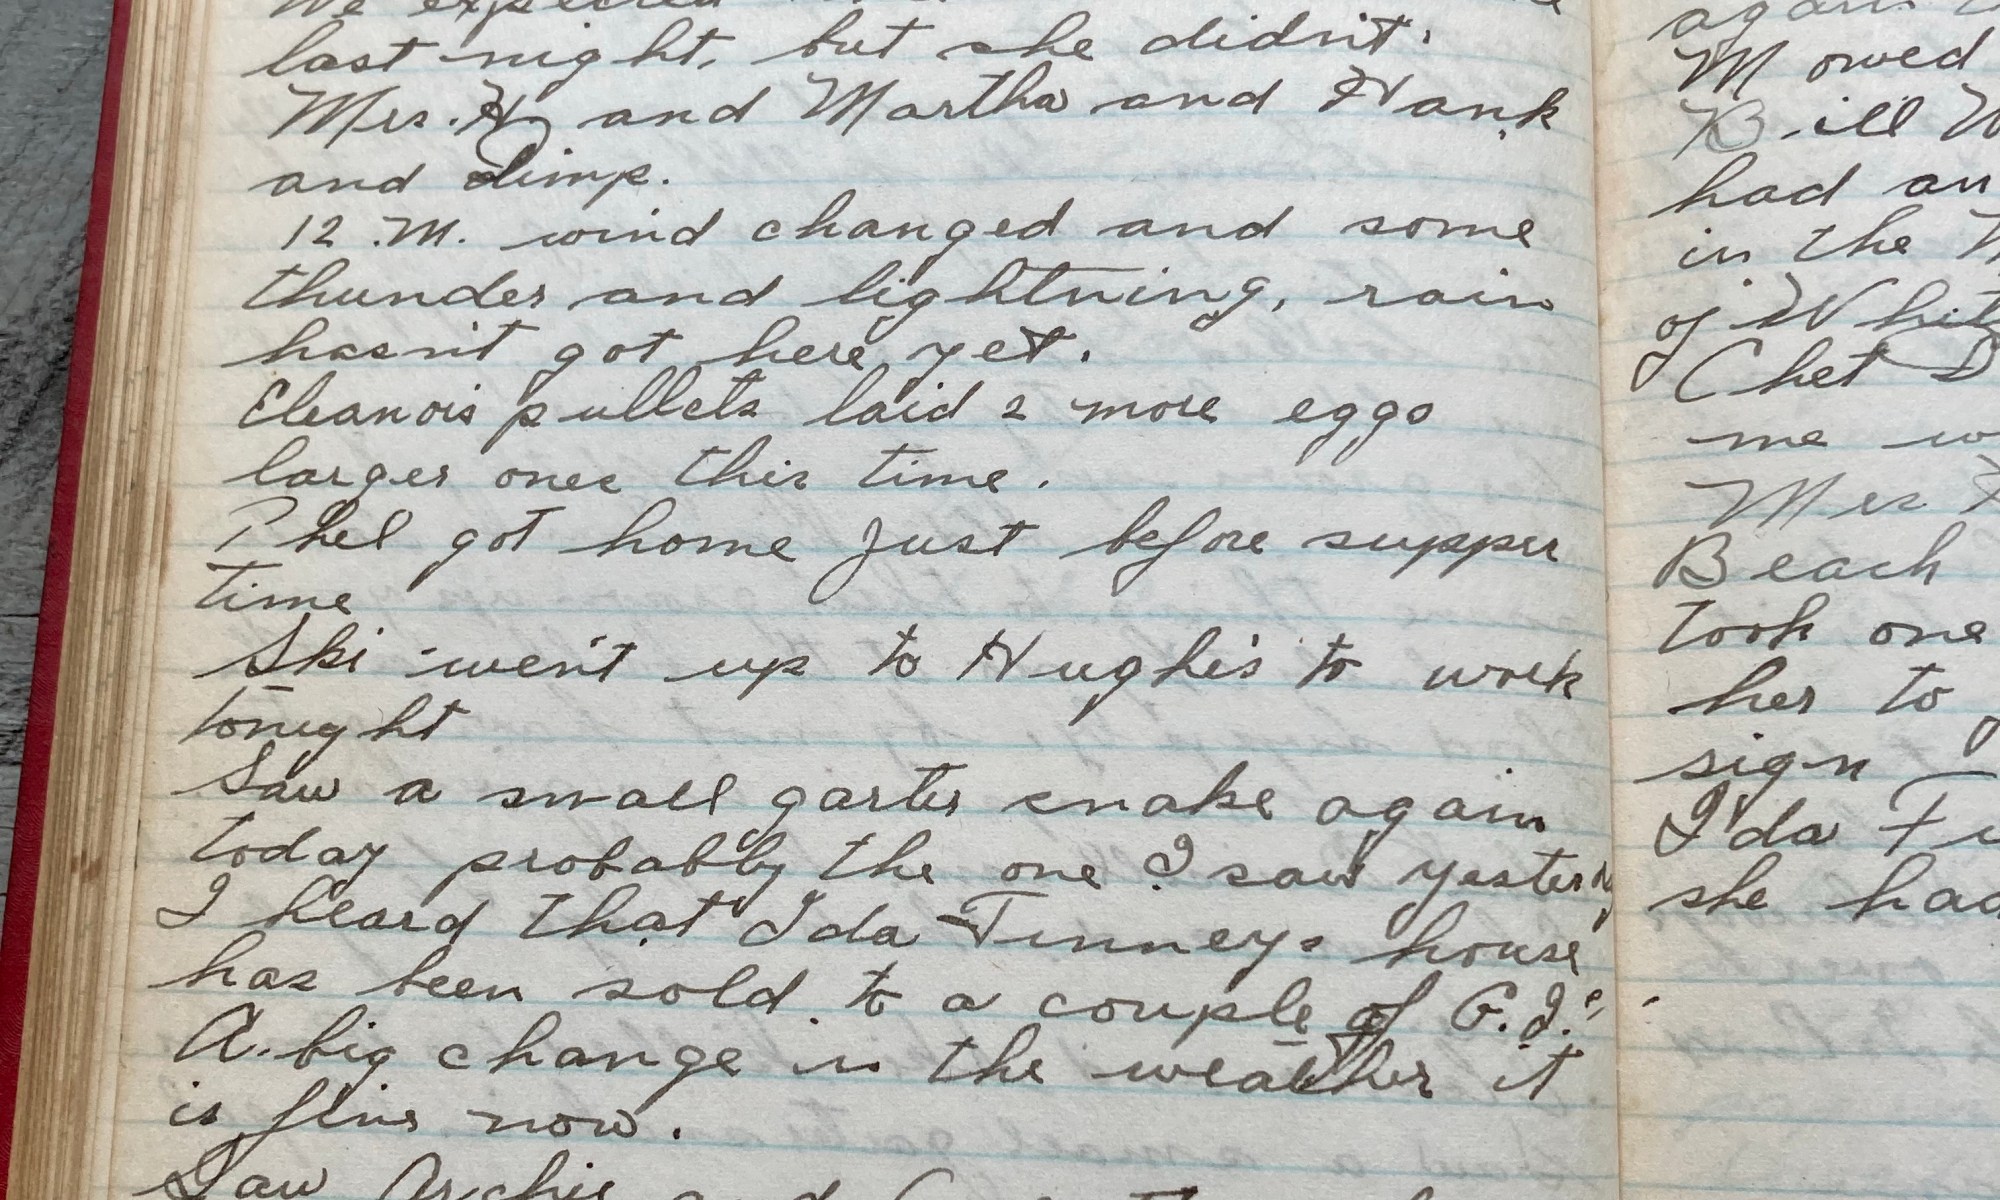 We expected
last night, but she didn't.
Mrs. H and Martha and Hank
and dimp.
12 .M. wind changed and some
thunder and lightning, rain
hasn't got here yet.
Eleanors pullets laid 2 more eggs
larger ones this time.
Phel got home just before supper
time
Ski went up to Hughe's to work
tonight
Saw a small garter snake again
today probably the one I saw yester
I heard that Ida Tinneys house
has been sold to a couple of G.I.'s
A big change in the weather it
is fine now.
Saw Archie and
again
Mowed
Bill W
had an
in the
of Whit
Chet D
me w
Mrs
Beach
took one
her to
sign
Ida
she had